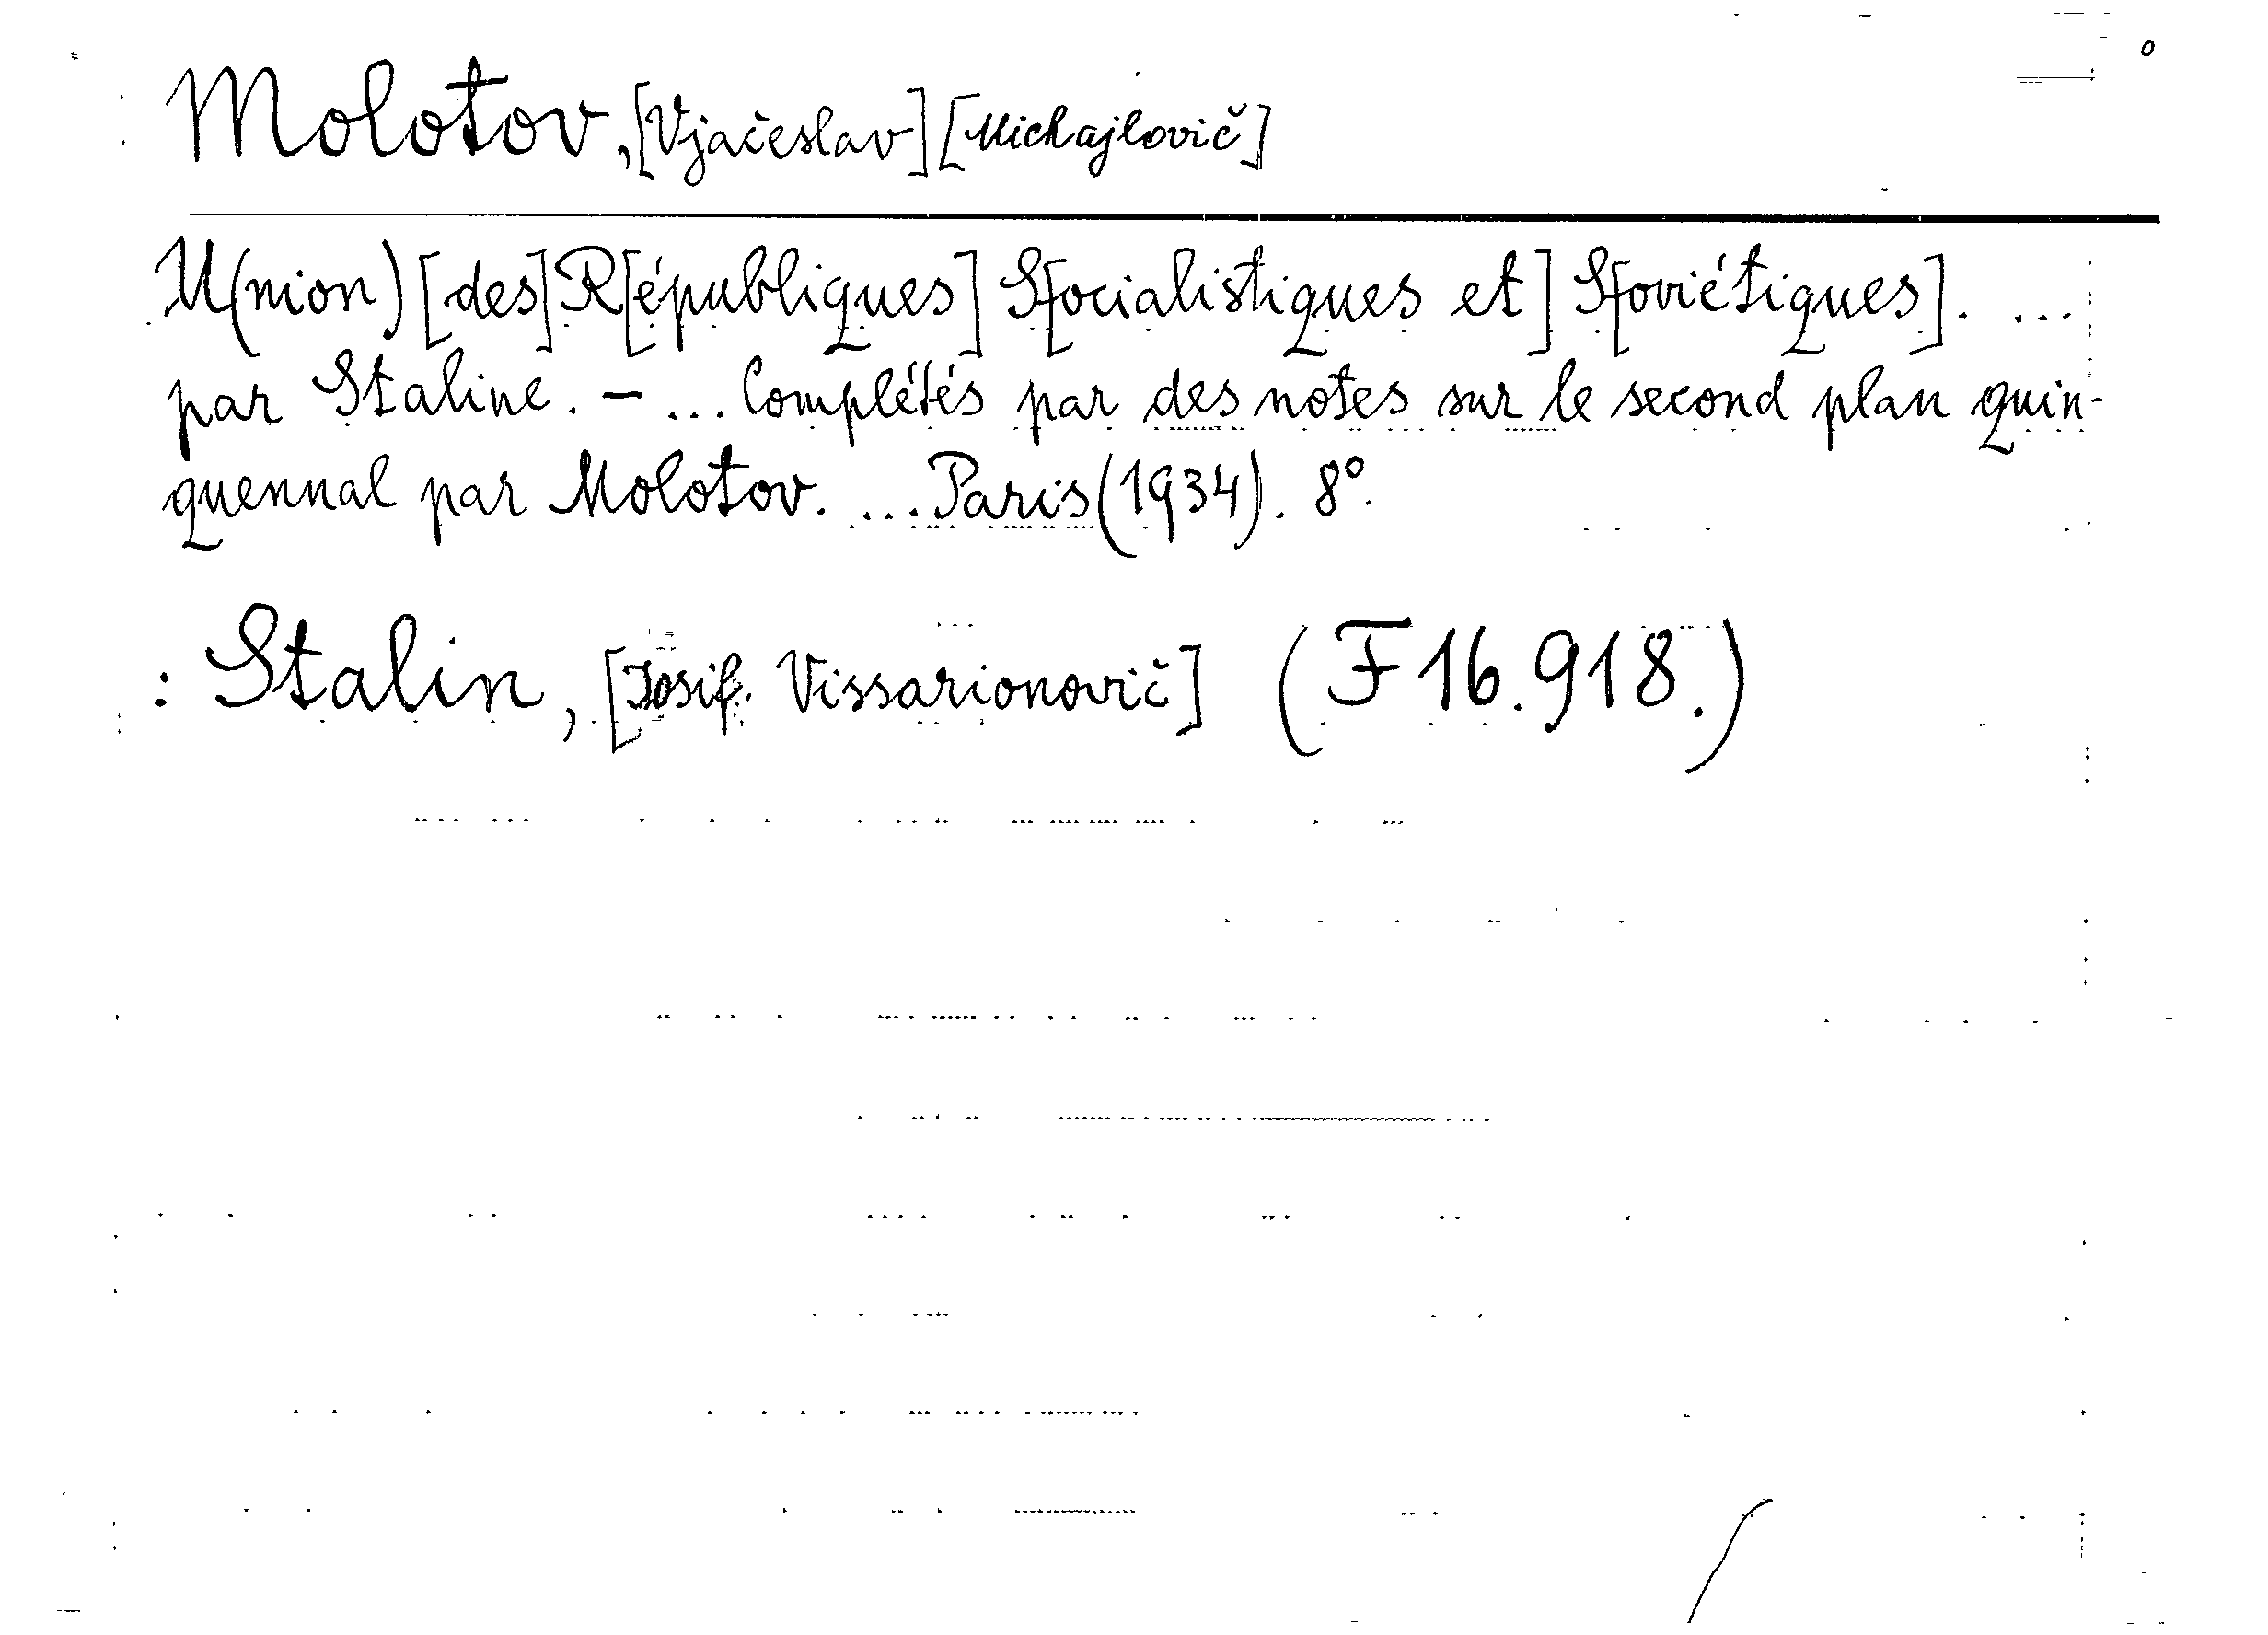 Molotov, [Vjačeslav] [Michajlovič]
U(nion) [des] R[épubliques] S[ocialistiques et] S[oviétiques]. ...
par Staline. – ... Complétés par des notes sur le second plan quin-
quennal par Molotov. ... Paris (1934). 8°.
: Stalin, [Iosif Vissarionovič] (F 16.918.)